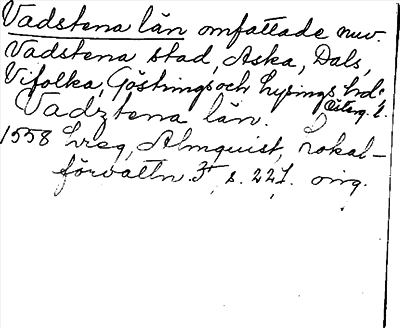 Vadstena län omfattade nuv.
Vadstena stad, Aska, Dals,
Vifolka, Göstrings och Lysings hd.
Österg. l.
Vadztena län.
1558 Lreg, Almquist, Lokal-
förvaltn. s. 221. orig.